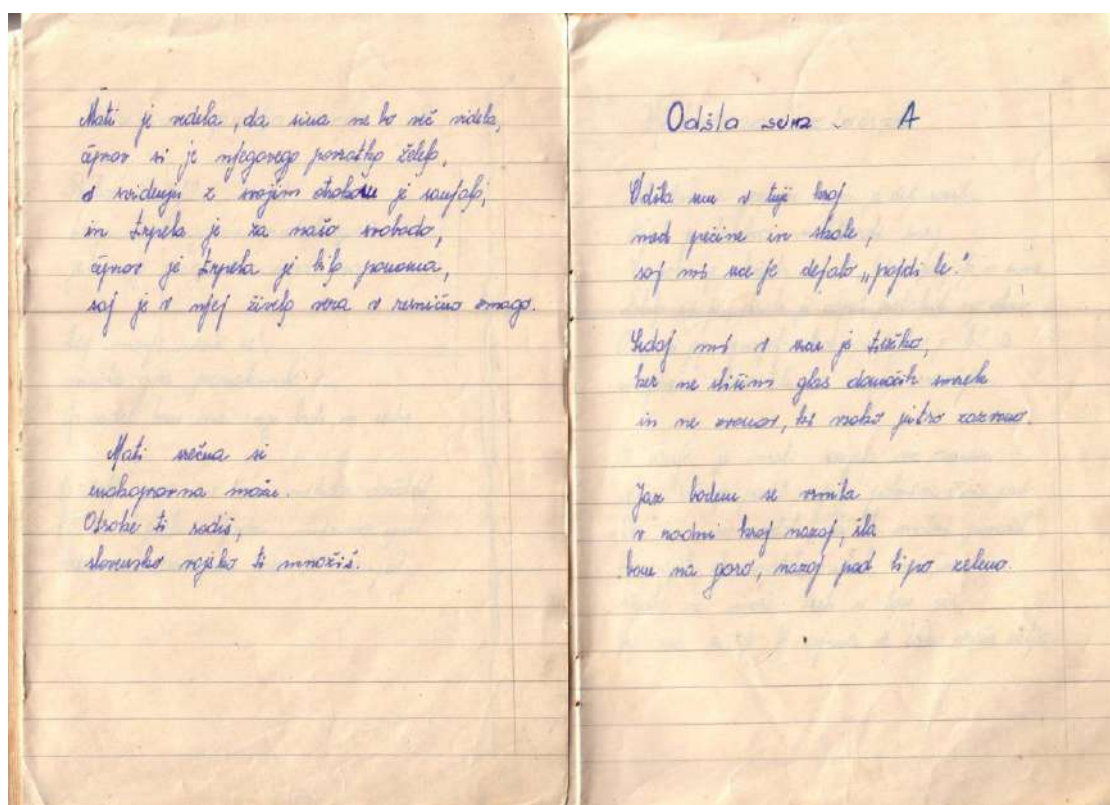 Mati je vedela, da sina ne bo več videla,
čeprav si je njegovega povratka želela,
o svidenju z svojim otrokom je sanjala,
in trpela je za našo svobodo,
čeprav je trpela je bila ponosna,
saj je v njej živela vera v resnično zmago.
Mati srečna si
enakopravna možu.
Otroke ti rodiš,
slovensko vojsko ti množiš.
Odšla sem A
Odšla sem v tuji kraj
med pečine in skale,
saj mi srce je dejalo „pojdi le."
Sedaj mi v srcu je težko,
ker ne slišim glas domačih smrek
in ne zvonov, ki vsako jutro zazveno.
Jaz bodem se vrnila
v rodni kraj nazaj, šla
bom na goro, nazaj pod lipo zeleno.